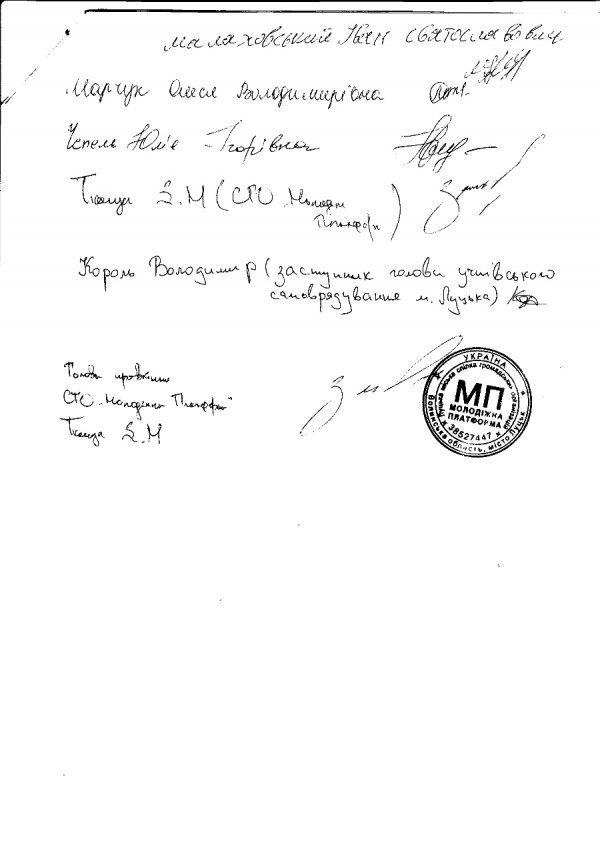 Малаховський Іван Святославович
Марчук Олеся Володимирівна
Юлія Ігорівна
Е.М (СГО Молодіжна
Платформа)
Король Володимир (заступник голови учнівського
самоврядування м. Луцька)
Голова правління
СГО "Молодіжна Платформа"
Е.М
УКРАЇНА
Луцька міська спілка громадських організацій
МП
МОЛОДІЖНА
ПЛАТФОРМА
38527447
Волинська область, місто Луцьк